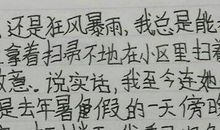 还是狂风暴雨，我总是能
拿着扫帚不地在小区里扫着
意。说实话，我至今连她
是去年暑假的一天傍